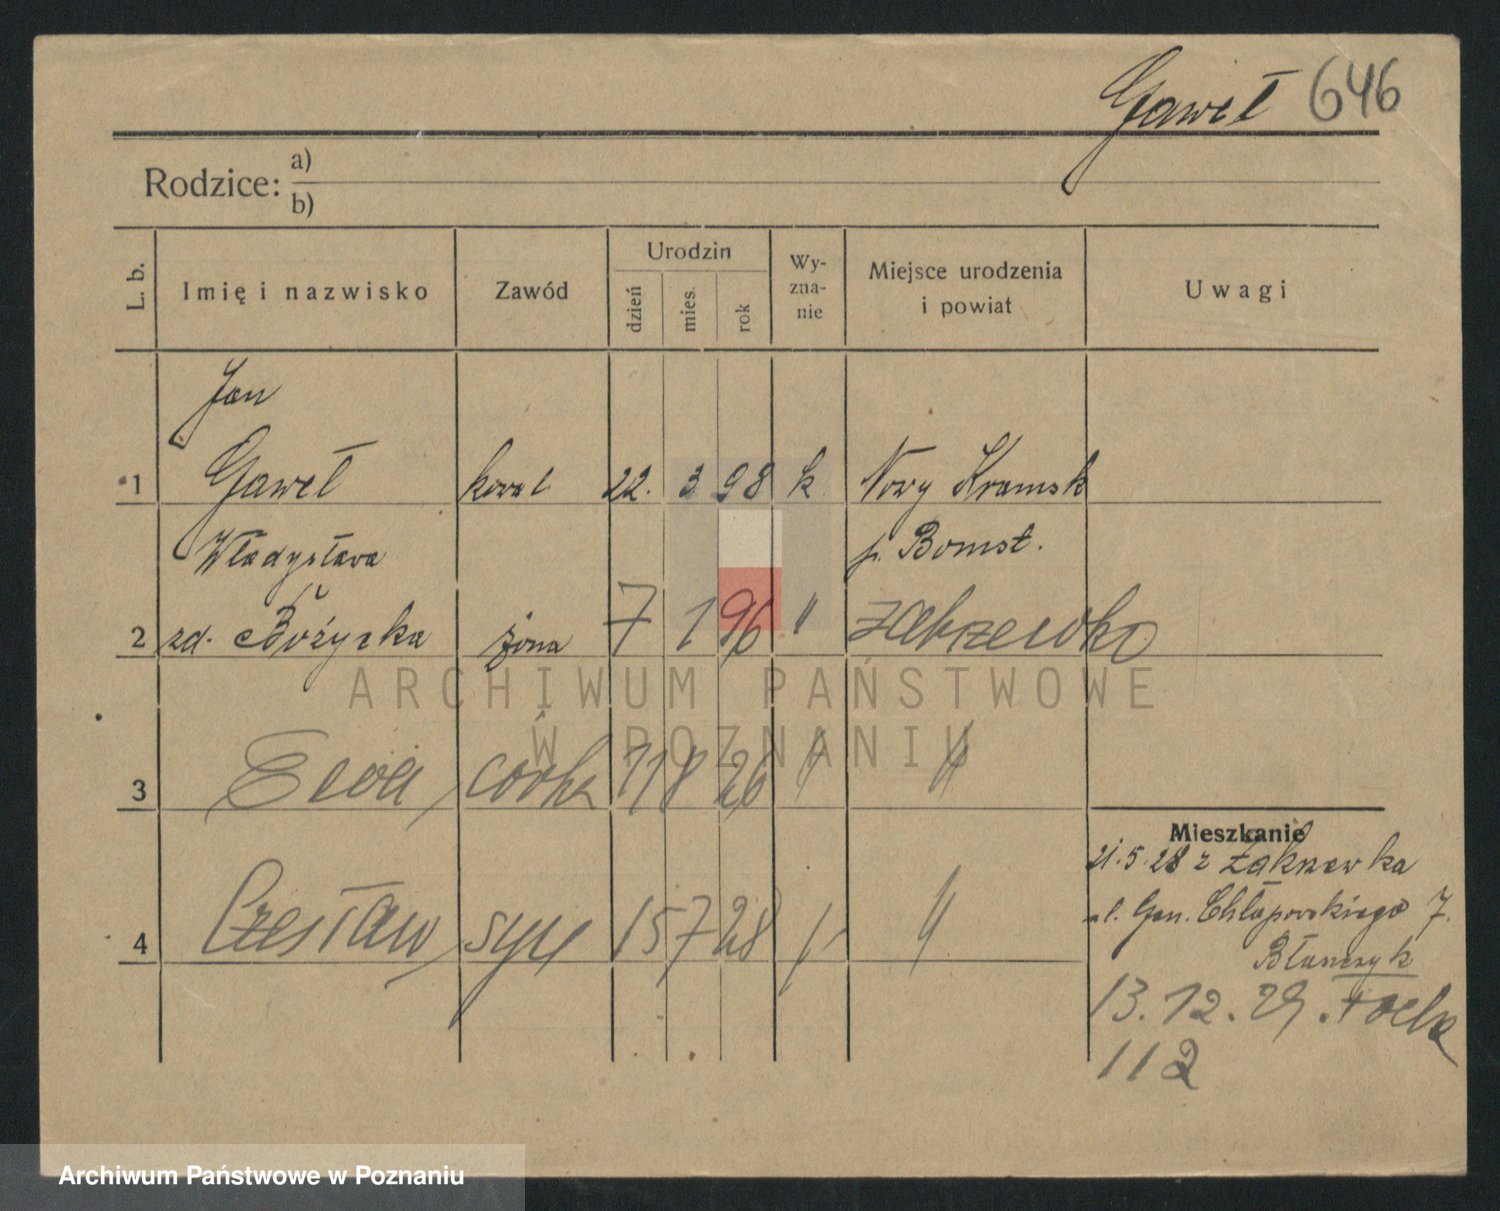 Gaweł 646
Rodzice: a)
b)
L. b. Imię i nazwisko Zawód Urodzin Wy-zna-nie Miejsce urodzenia i powiat Uwagi
dzień mies. rok
Jan
1 Gaweł kowal 22. 3 98 k Nowy Kramsk
Władysława p. Bomst.
2 zd. żona 7 1 96 " Zakrzewko
3 Ewa córka 11 8 26 " "
Mieszkanie
21.5.28 z Zakrzewka
4 Czesław syn 15 7 28 " "
ul. Gen. Chłapowskiego 7.
13.12.29.
112
ARCHIWUM PAŃSTWOWE
W POZNANIU
Archiwum Państwowe w Poznaniu